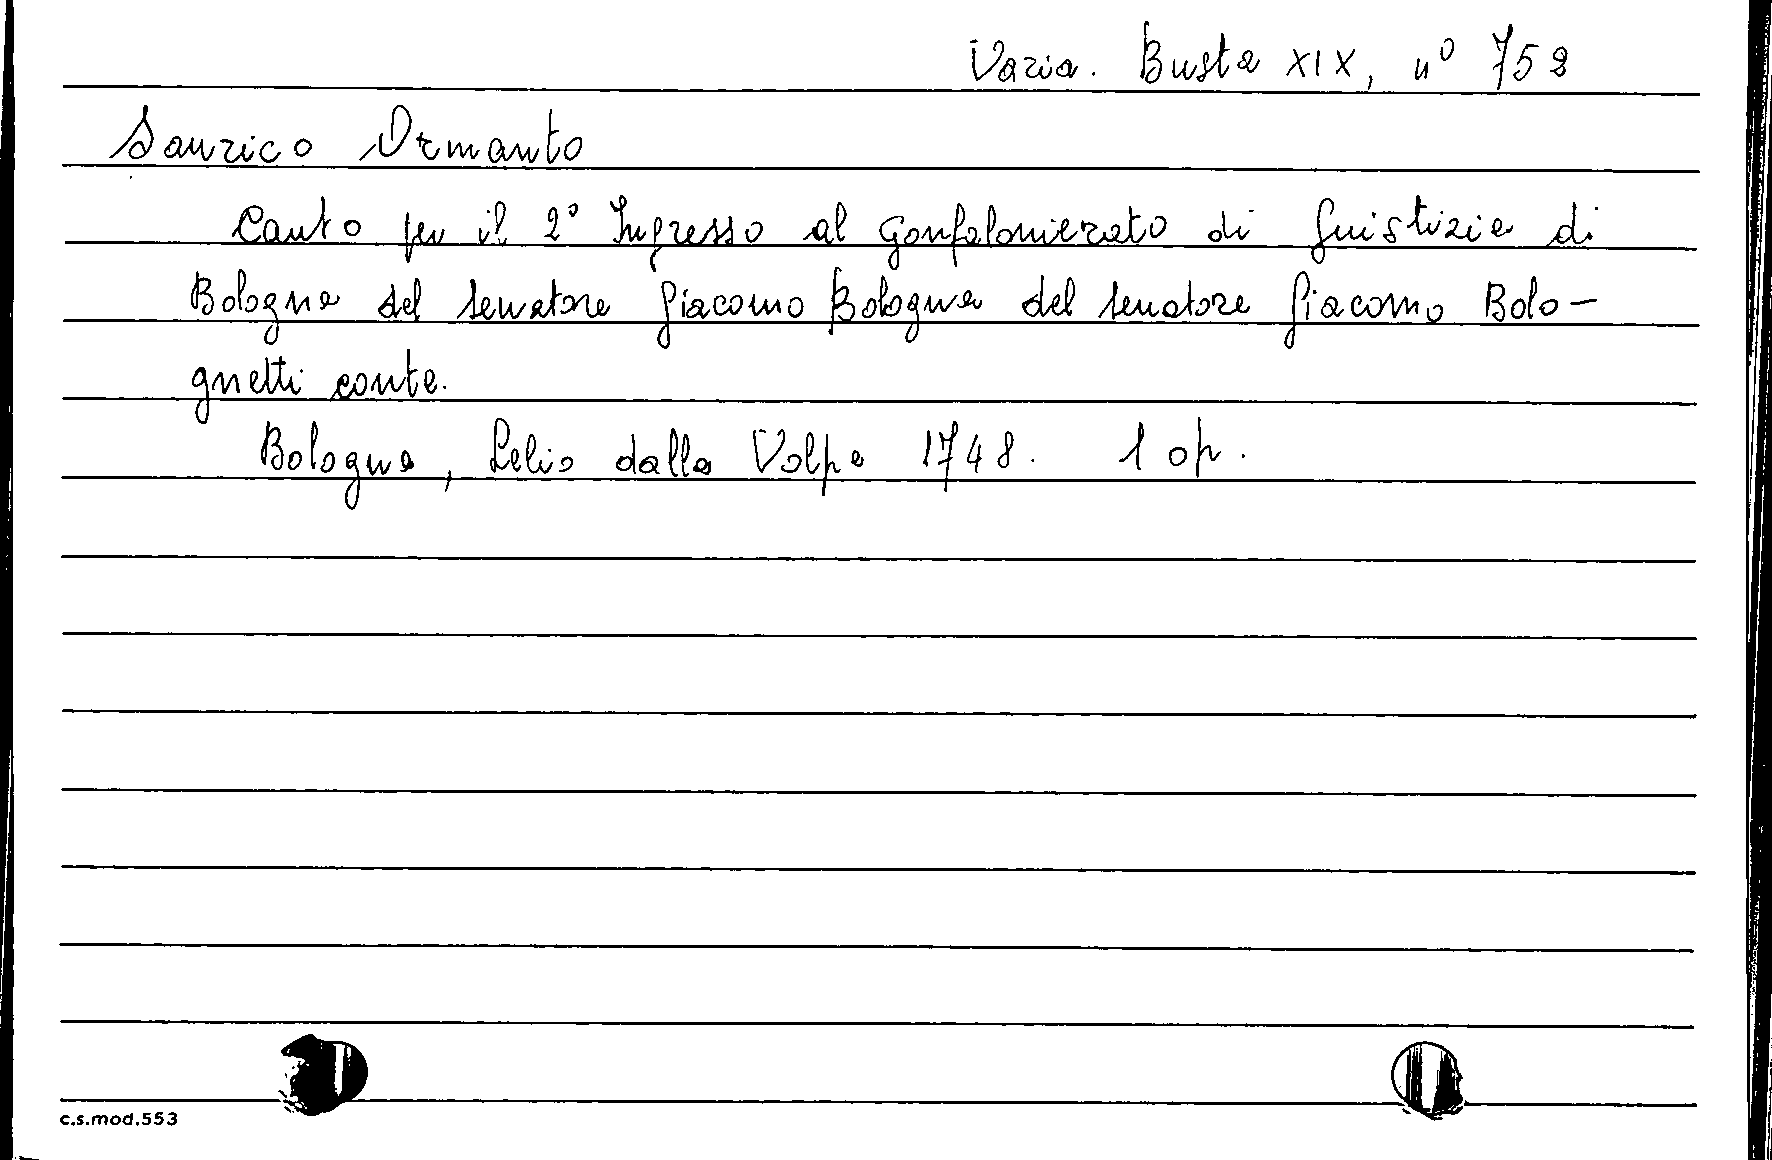 Varia. Busta XIX, n° 758
Saurico Ormanto
Canto per il 2° Ingresso al Gonfalonierato di Giustizia di
Bologna del senatore Giacomo Bologna del senatore Giacomo Bolo-
gnetti conte.
Bologna, Lelio dalla Volpe 1748. 1 op.
c.s.mod.553